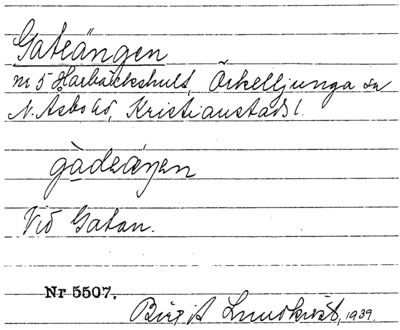 Gateängen
nr 5 Harbäckshult, Örkelljunga sn
N. Åsbo hd, Kristianstads l.
gàdəäŋen
Vid Gatan.
Nr 5507.
Birgit Lundkvist, 1939.